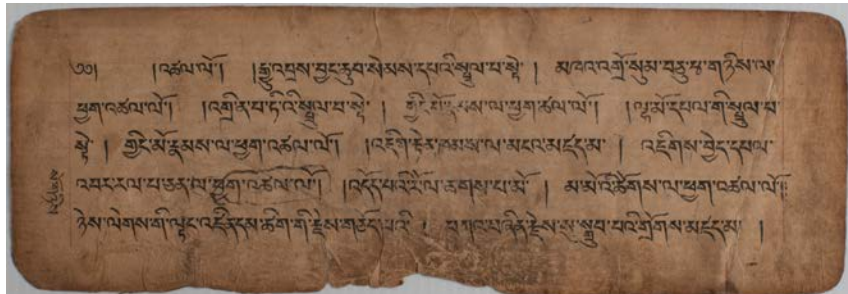 ༄༅། །འཚལ་ལོ།། །རྒྱུ་འབྲས་བྱང་ཆུབ་སེམས་དཔའི་སྤྲུལ་པ་སྟེ། མཁའ་འགྲོ་སུམ་བཅུ་རྩ་གཉིས་ལ་
ཕྱག་འཚལ་ལོ།། །འགྲིན་པ་ཏིའི་སྤྲུལ་པ་སྟེ། གྱིང་མོ་རྣམས་ལ་ཕྱག་ཚལ་ལོ།། །ལྷ་མོ་དཔལ་གི་སྤྲུལ་པ་
སྟེ། གྱིང་མོ་རྣམས་ལ་ཕྱག་འཚལ་ལོ།། །འཇིག་རྟེན་ཁམས་ལ་མངའ་མཛད་མ། འཇིགས་བྱེད་དཔལ་
འབར་རལ་པ་ཅན་ལ་ཕྱག་འཚལ་ལོ།། །འདོད་པའི་རོལ་ཆགས་པ་མོ། མ་མོའི་ཚོགས་ལ་ཕྱག་འཚལ་ལོ།།
ཉེས་ལེགས་གི་ལྟང་འཛིན་དམ་ཚིག་གི་རྗེས་གཅོད་པའི། བཀའ་བཞིན་རྗེས་སུ་སྒྲུབ་པའི་གྲོགས་མཛད་མ།